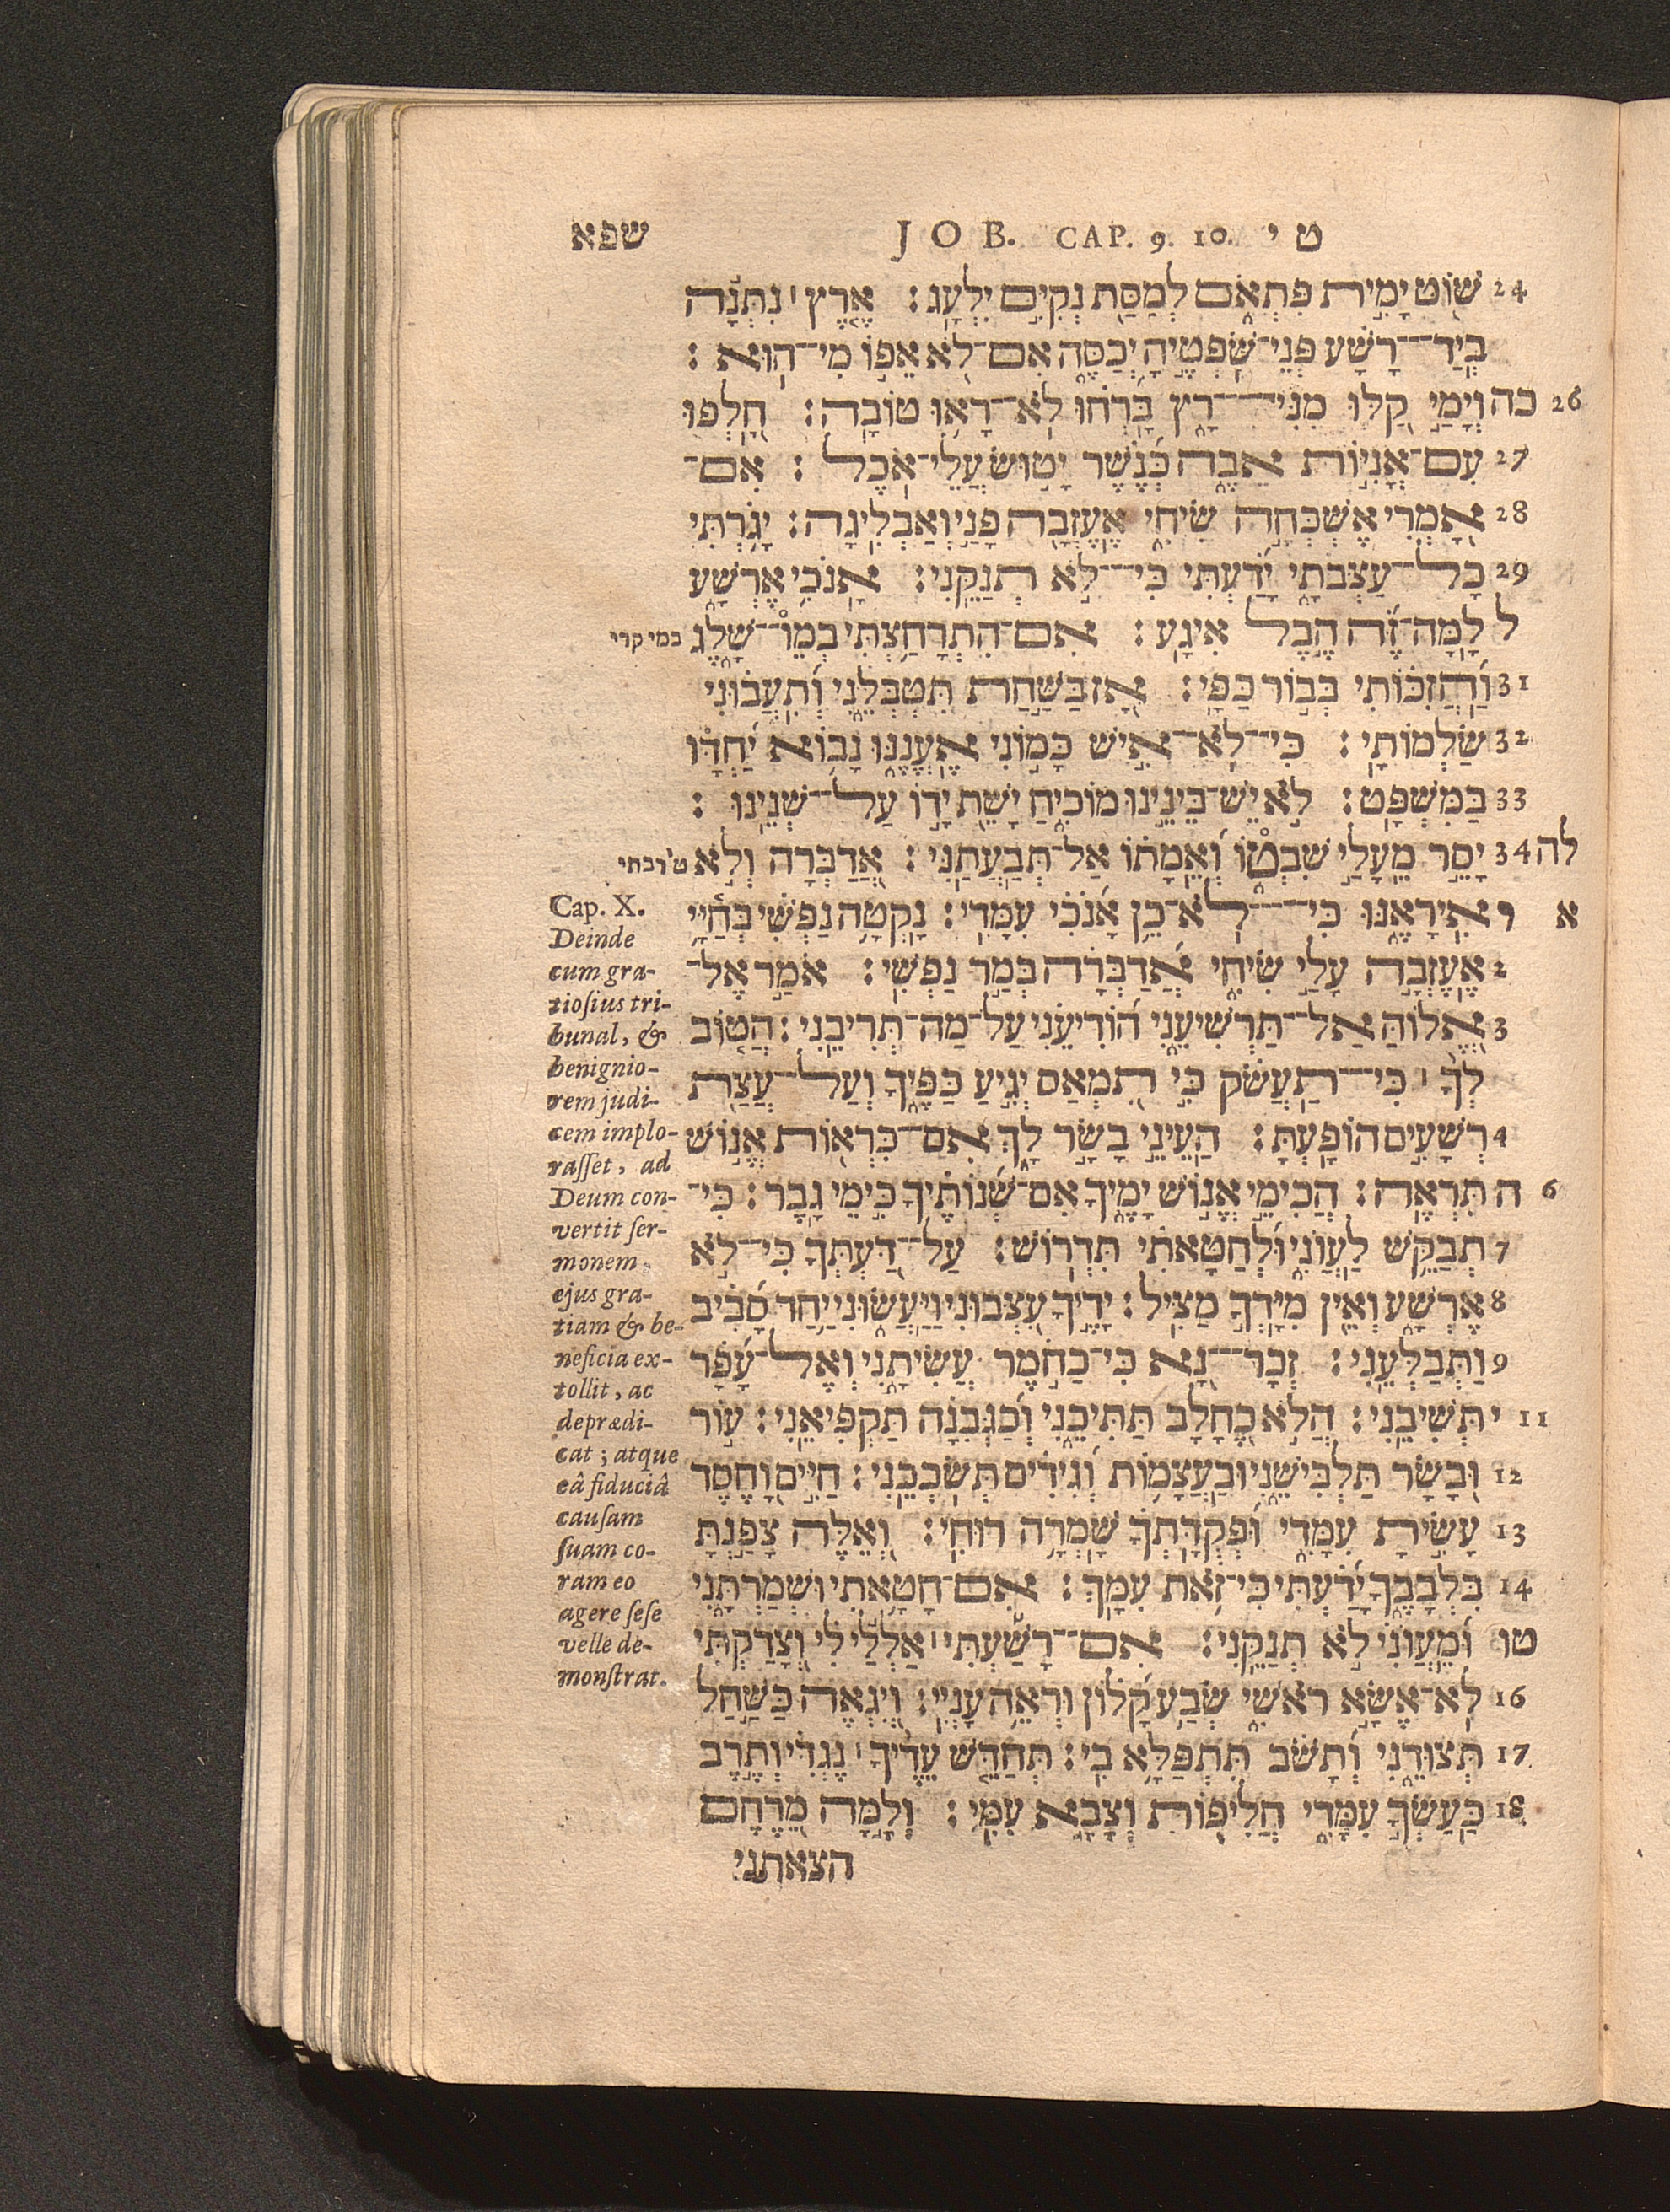 שפא JOB. CAP. 9. 10. ט י
24 שׁוֹט יָמִית פִּתְאֹם לְמַסַּת נְקִיִּם יִלְעָג׃ אֶרֶץ ׀ נִתְּנָה
בְיַד־רָשָׁע פְּנֵי־שֹׁפְטֶיהָ יְכַסֶּה אִם־לֹא אֵפוֹ מִי־הוּא׃
26 כה וְיָמַי קַלּוּ מִנִּי־רָץ בָּרְחוּ לֹא־רָאוּ טוֹבָה׃ חָלְפוּ
27 עִם־אֳנִיּוֹת אֵבֶה כְּנֶשֶׁר יָטוּשׂ עֲלֵי־אֹכֶל׃ אִם־
28 אָמְרִי אֶשְׁכְּחָה שִׂיחִי אֶעֶזְבָה פָנַי וְאַבְלִיגָה׃ יָגֹרְתִּי
29 כָל־עַצְּבֹתָי יָדַעְתִּי כִּי־לֹא תְנַקֵּנִי׃ אָנֹכִי אֶרְשָׁע
ל לָמָּה־זֶּה הֶבֶל אִיגָע׃ אִם־הִתְרָחַצְתִּי בְמֵו־שָׁלֶג במי קרי
31 וַהֲזִכּוֹתִי בְּבוֹר כַּפָּי׃ אָז בַּשַּׁחַת תִּטְבְּלֵנִי וְתִעֲבוּנִי
32 שַׂלְמוֹתָי׃ כִּי־לֹא־אִישׁ כָּמוֹנִי אֶעֱנֶנּוּ נָבוֹא יַחְדָּו
33 בַּמִּשְׁפָּט׃ לֹא יֵשׁ־בֵּינֵינוּ מוֹכִיחַ יָשֵׁת יָדוֹ עַל־שְׁנֵינוּ׃
לה 34 יָסֵר מֵעָלַי שִׁבְטוֹ וְאֵמָתוֹ אַל־תְּבַעֲתַנִּי׃ אֲדַבְּרָה וְלֹא ט׳ רבתי
א י אִירָאֶנּוּ כִּי־לֹא־כֵן אָנֹכִי עִמָּדִי׃ נָקְטָה נַפְשִׁי בְּחַיָּי
2 אֶעֶזְבָה עָלַי שִׂיחִי אֲדַבְּרָה בְּמַר נַפְשִׁי׃ אֹמַר אֶל־
3 אֱלוֹהַּ אַל־תַּרְשִׁיעֵנִי הוֹדִיעֵנִי עַל־מַה־תְּרִיבֵנִי׃ הֲטוֹב
לְךָ ׀ כִּי־תַעֲשֹׁק כִּי תִמְאַס יְגִיעַ כַּפֶּיךָ וְעַל־עֲצַת
4 רְשָׁעִים הוֹפָעְתָּ׃ הַעֵינֵי בָשָׂר לָךְ אִם־כִּרְאוֹת אֱנוֹשׁ
6 ה תִּרְאֶה׃ הֲכִימֵי אֱנוֹשׁ יָמֶיךָ אִם־שְׁנוֹתֶיךָ כִּימֵי גָבֶר׃ כִּי־
7 תְבַקֵּשׁ לַעֲוֹנִי וּלְחַטָּאתִי תִדְרוֹשׁ׃ עַל־דַּעְתְּךָ כִּי־לֹא
8 אֶרְשָׁע וְאֵין מִיָּדְךָ מַצִּיל׃ יָדֶיךָ עִצְּבוּנִי וַיַּעֲשׂוּנִי יַחַד סָבִיב
9 וַתְּבַלְּעֵנִי׃ זְכָר־נָא כִּי־כַחֹמֶר עֲשִׂיתָנִי וְאֶל־עָפָר
11 י תְּשִׁיבֵנִי׃ הֲלֹא כֶחָלָב תַּתִּיכֵנִי וְכַגְּבִנָּה תַּקְפִּיאֵנִי׃ עוֹר
12 וּבָשָׂר תַּלְבִּישֵׁנִי וּבַעֲצָמוֹת וְגִידִים תְּשֹׂכְכֵנִי׃ חַיִּים וָחֶסֶד
13 עָשִׂיתָ עִמָּדִי וּפְקֻדָּתְךָ שָׁמְרָה רוּחִי׃ וְאֵלֶּה צָפַנְתָּ
14 בִלְבָבֶךָ יָדַעְתִּי כִּי־זֹאת עִמָּךְ׃ אִם־חָטָאתִי וּשְׁמַרְתָּנִי
טו וּמֵעֲוֹנִי לֹא תְנַקֵּנִי׃ אִם־רָשַׁעְתִּי ׀ אַלְלַי לִי וְצָדַקְתִּי
16 לֹא־אֶשָּׂא רֹאשִׁי שְׂבַע קָלוֹן וּרְאֵה עָנְיִי׃ וְיִגְאֶה כַּשַּׁחַל
17 תְּצוּדֵנִי וְתָשֹׁב תִּתְפַּלָּא בִי׃ תְּחַדֵּשׁ עֵדֶיךָ ׀ נֶגְדִּי וְתֶרֶב
18 כַּעַשְׂךָ עִמָּדִי חֲלִיפוֹת וְצָבָא עִמִּי׃ וְלָמָּה מֵרֶחֶם
הצאתני
Cap. X.
Deinde
cum gra-
tiosius tri-
bunal, &
benignio-
rem judi-
cem implo-
rasset, ad
Deum con-
vertit ser-
monem,
ejus gra-
tiam & be-
neficia ex-
tollit, ac
deprædi-
cat; atque
eâ fiduciâ
causam
suam co-
ram eo
agere sese
velle de-
monstrat.